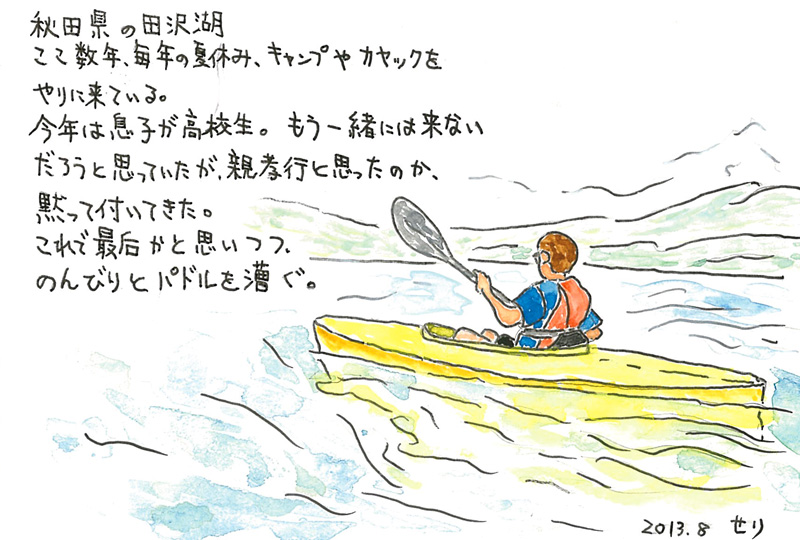 秋田県の田沢湖
ここ数年、毎年の夏休み、キャンプや カヤックを
やりに来ている。
今年は息子が高校生。 もう一緒には来ない
だろうと思っていたが、親孝行と思ったのか、
黙って付いてきた。
これで最后かと思いつつ、
のんびりとパドルを漕ぐ。
2013.8 せり